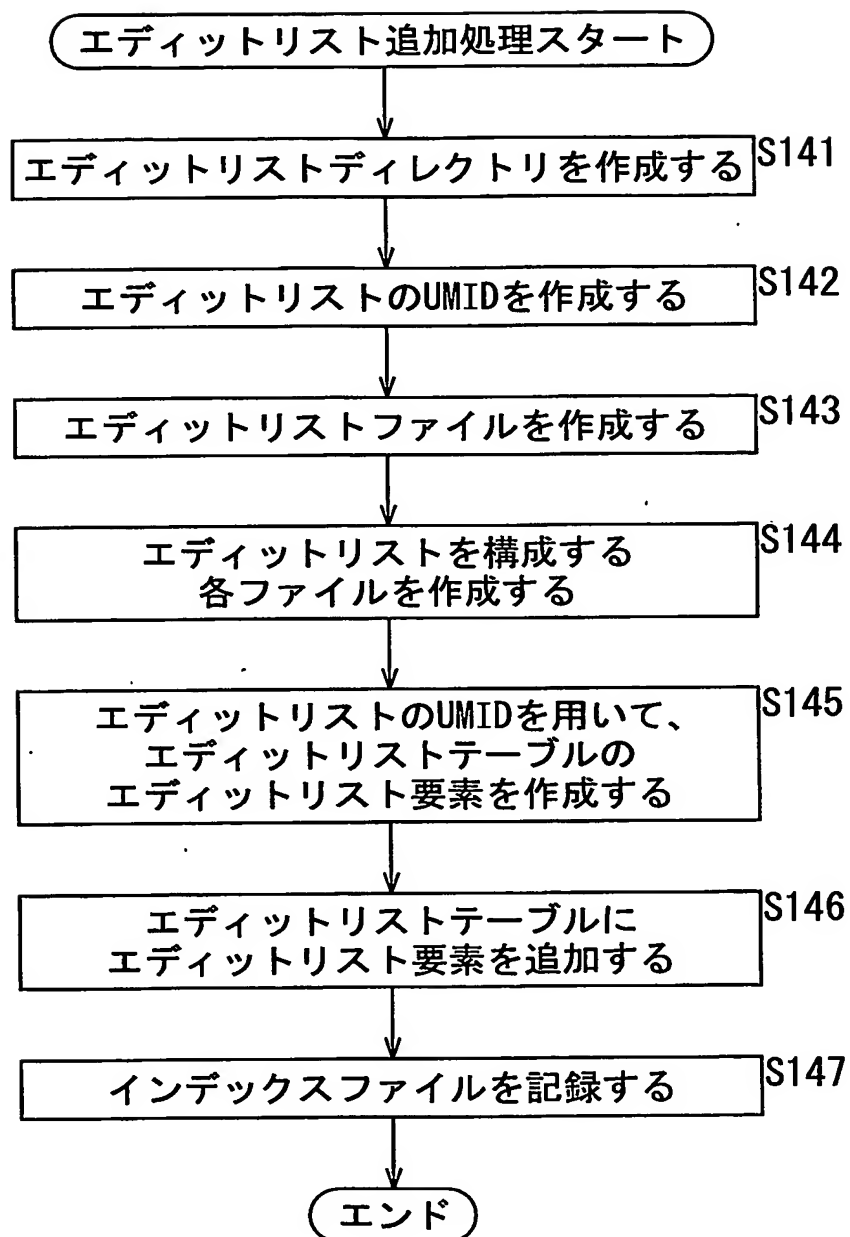 エディットリスト追加処理スタート
エディットリストディレクトリを作成する
S141
エディットリストのUMIDを作成する
S142
エディットリストファイルを作成する
S143
エディットリストを構成する
各ファイルを作成する
S144
エディットリストのUMIDを用いて、
エディットリストテーブルの
エディットリスト要素を作成する
S145
エディットリストテーブルに
エディットリスト要素を追加する
S146
インデックスファイルを記録する
S147
エンド